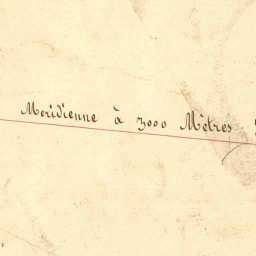 Meridienne à 3000 Mètres